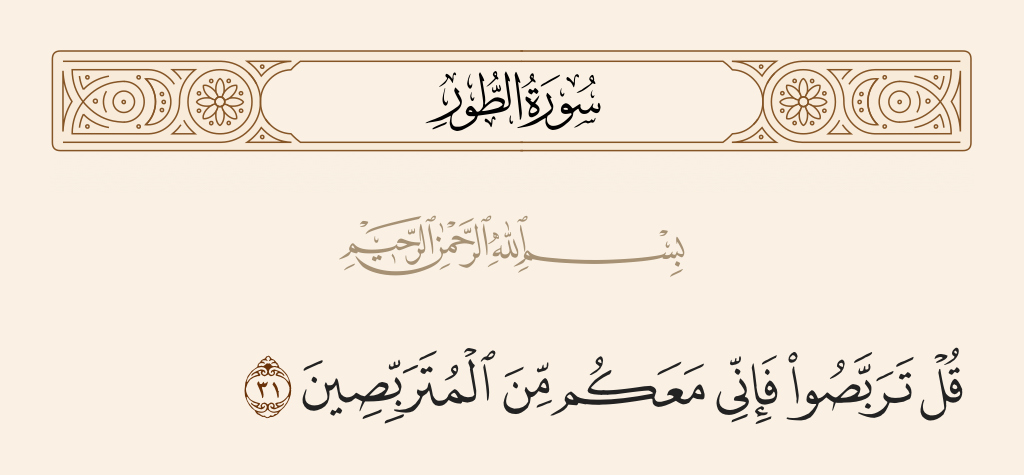 سُورَةُ الطُّورِ
بِسْمِ ٱللَّهِ ٱلرَّحْمَٰنِ ٱلرَّحِيمِ
قُلْ تَرَبَّصُوا۟ فَإِنِّى مَعَكُم مِّنَ ٱلْمُتَرَبِّصِينَ ٣١